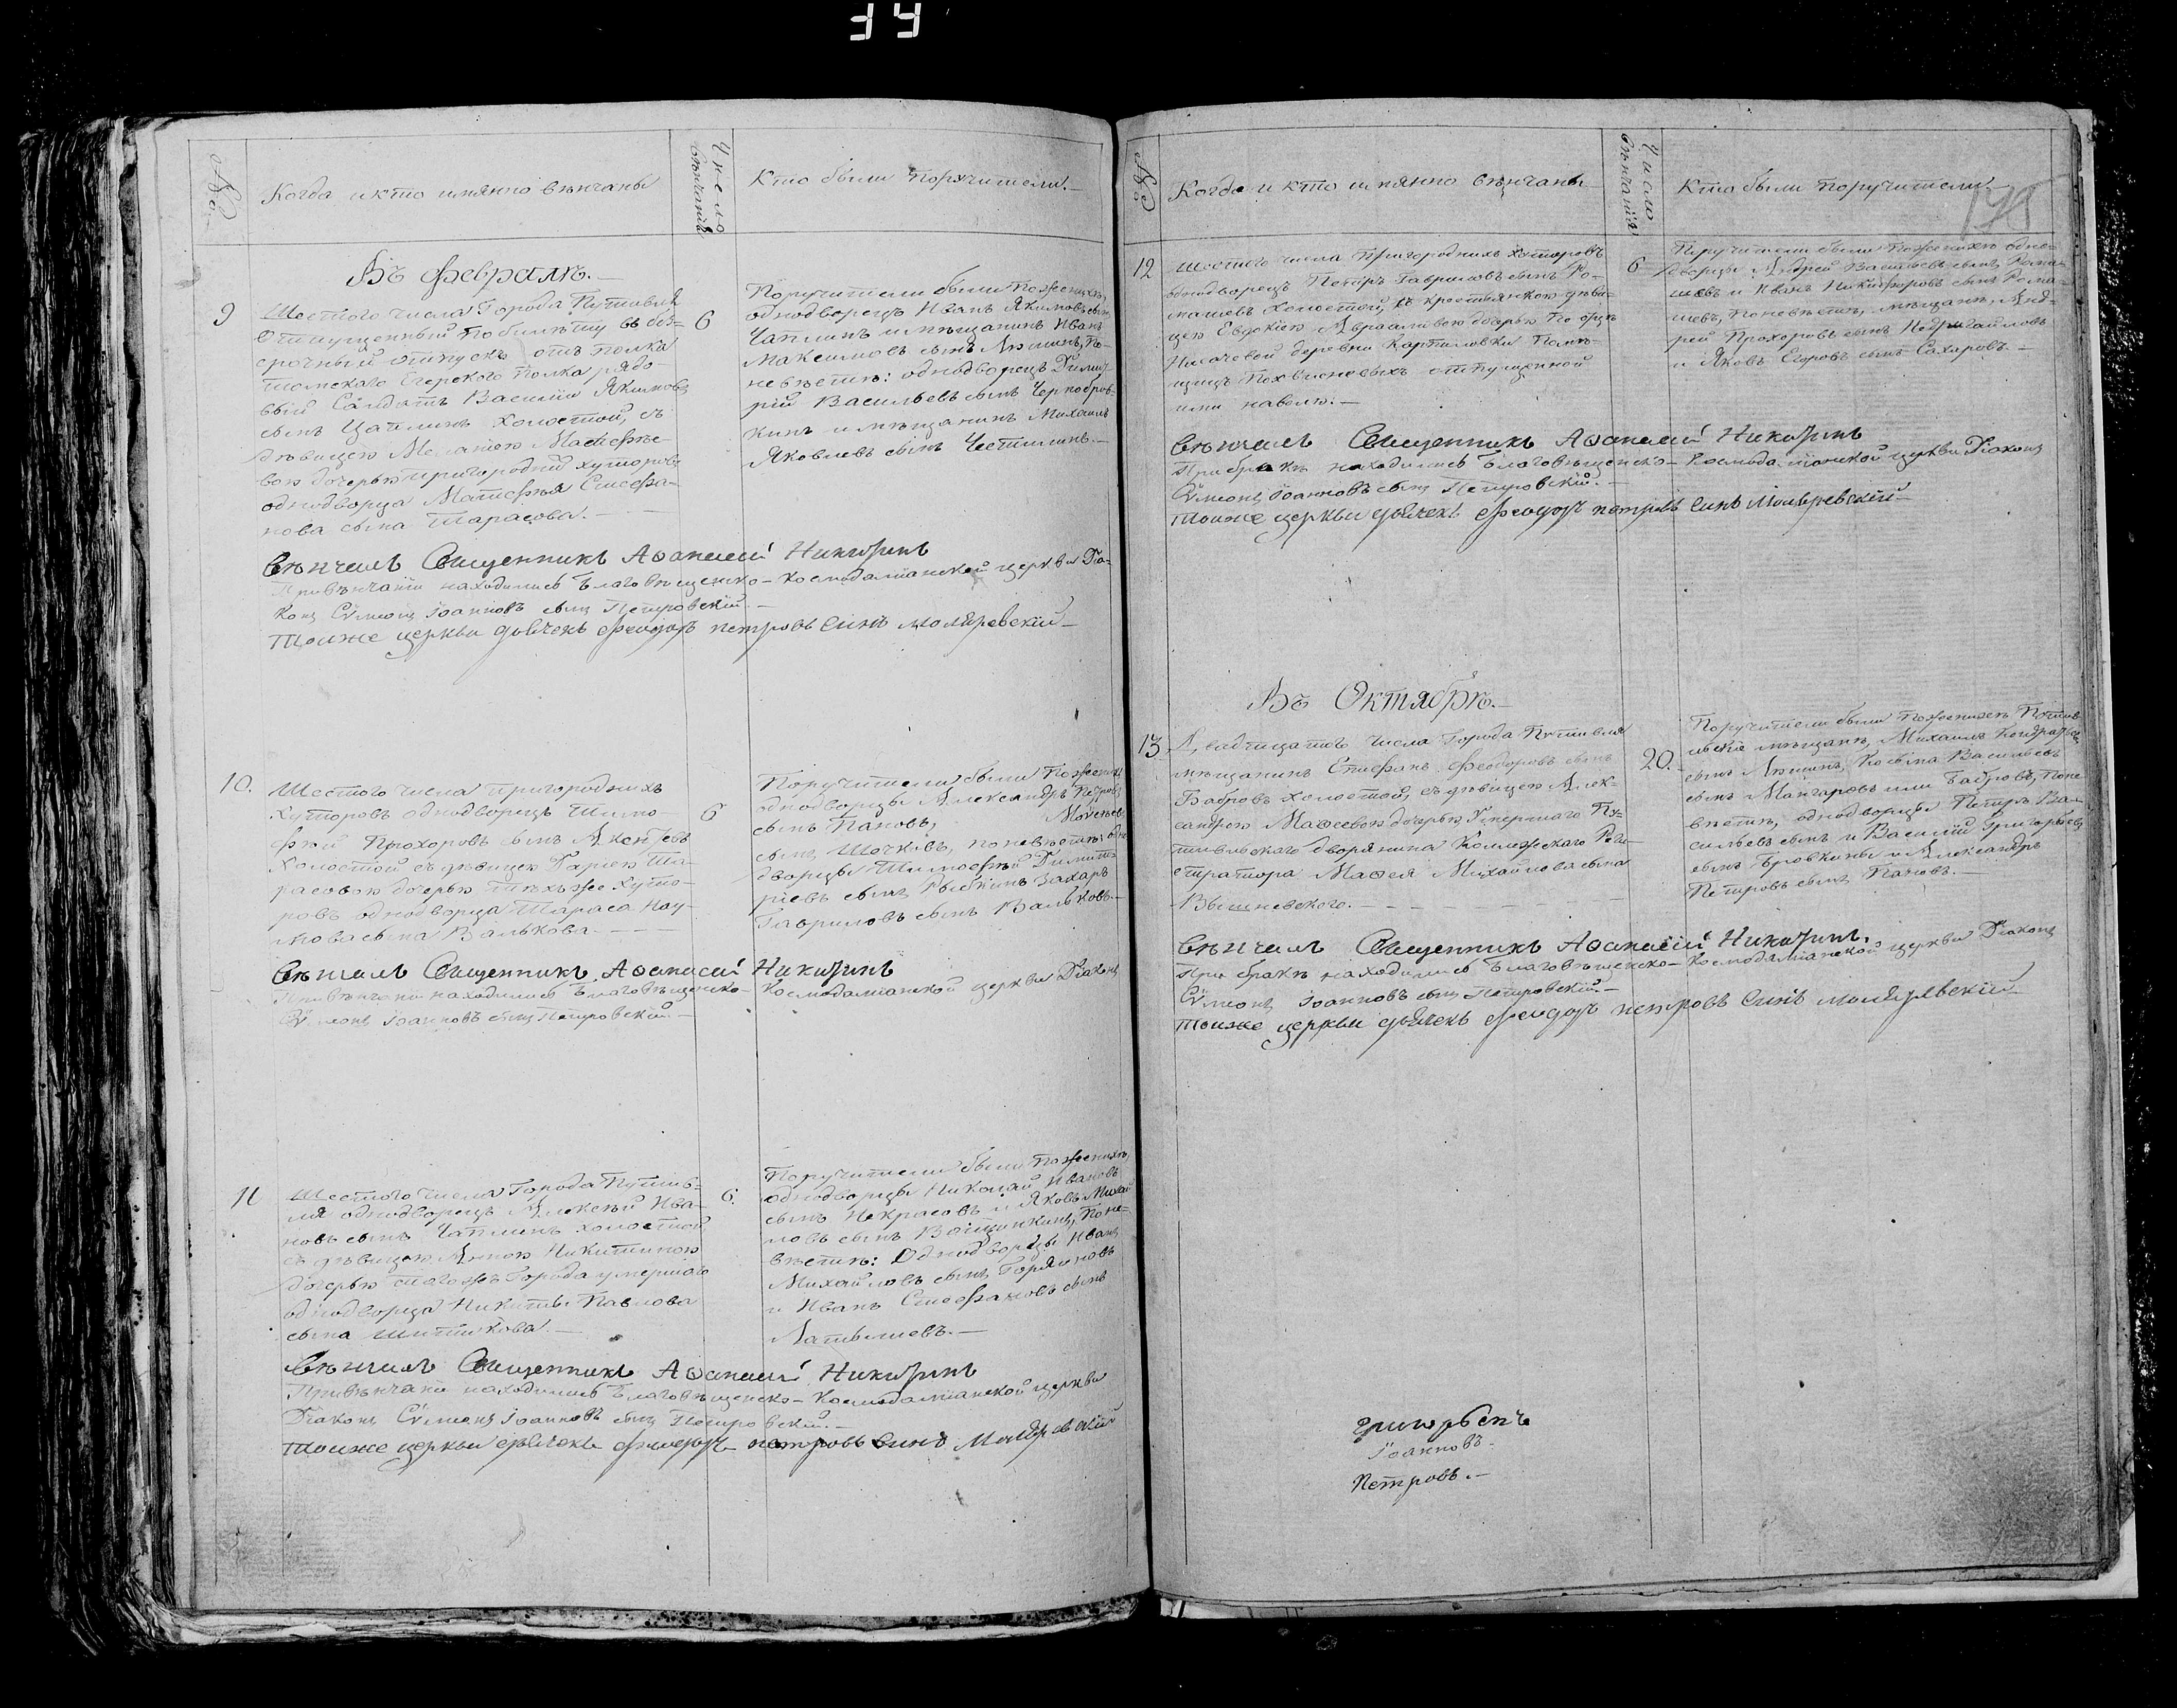 №
Когда и кто имянно вѣнчаны
Число вѣнчаній
Кто были поручители.
Въ февралѣ.
9
Шестого числа Города Путивля
Отпущенный по билѣту въ без-
срочный отпускъ отъ полка
Егерского полка рядо-
вый Солдатъ Василій Якимовъ
сынъ Чаплинъ холостой, съ
дѣвицею Меланіею Матѳѣе-
вою дочерью пригородныхъ хуторовъ
однодворца Матѳѣя Стефа-
нова сына Тарасова.
6
Поручители были по женихѣ,
однодворецъ Иванъ Якимовъ сынъ
Чаплинъ и мѣщанинъ Иванъ
Максимовъ сынъ Люшинъ, по
невѣстѣ: однодворецъ Димит-
рій Васильевъ сынъ Чернобров-
кинъ и мѣщанинъ Михаилъ
Яковлевъ сынъ Честилинъ.
Вѣнчалъ Священникъ Аѳанасий Никитинъ
При вѣнчаніи находились Благовѣщенско-Космодаміанской церкви Діа-
конъ Сѵмеонъ Іоанновъ сынъ Петровскій.
Тоиже церкви дьячекъ Феодоръ петровъ синъ
10.
Шестого числа пригородныхъ
хуторовъ однодворецъ Тимо-
фѣй Прохоровъ сынъ Аксентьевъ
холостой съ дѣвицею Дарьею Та-
расовою дочерью тѣхъ же хуто-
ровъ однодворца Тараса Нау-
мова сына Валькова.
6
Поручители были по женихѣ
однодворцы Александръ Петровъ
сынъ Пановъ, Моисеевъ
сынъ Шочковъ, по невѣстѣ: одно-
дворцы Тимоѳѣй Димит-
ріевъ сынъ Рыбкинъ Захаръ
Гавриловъ сынъ Вальковъ.
Вѣнчалъ Священникъ Аѳанасий Никитинъ
При вѣнчаніи находились Благовѣщенско-Космодаміанской церкви Діаконъ
Сѵмеонъ Іоанновъ сынъ Петровскій.
11
Шестого числа Города Путив-
ля однодворецъ Алексѣй Ива-
новъ сынъ Чаплинъ холостой
съ дѣвицею Анною Никитиною
дочерью тогожъ Города умершаго
однодворца Никиты Павлова
сына Шитикова.
6.
Поручители были по женихѣ,
однодворцы Николай Ивановъ
сынъ Некрасовъ и Яковъ Михай-
ловъ сынъ Воищинкинъ, по не-
вѣстѣ: Однодворцы Иванъ
Михайловъ сынъ Горяиновъ
и Иванъ Стефановъ сынъ
Латышевъ.
Вѣнчалъ Священникъ Аѳанасий Никитинъ
При вѣнчаніи находились Благовѣщенско-Космодаміанской церкви
Діаконъ Сѵмеонъ Іоанновъ сынъ Петровскій.
Тоиже церкви дьячекъ Феодоръ петровъ синъ
№
Когда и кто имянно вѣнчаны
Число вѣнчаній
Кто были поручители
12
Шестого числа Пригородныхъ хуторовъ
однодворецъ Петръ Гавриловъ сынъ Ро-
машевъ холостой, съ крестьянкою дѣви-
цею Евдокіею Авраамовою дочерью
деревни Карпиловки помѣ-
щицъ отпущенной
ими наволю.
6
Поручители были по женихѣ одно-
дворцы Андрей Васильевъ сынъ Рома-
шевъ и Иванъ Никифоровъ сынъ Рома-
шевъ, по невѣстѣ, мѣщанѣ, Анд-
рей Прохоровъ сынъ
и Яковъ Егоровъ сынъ Сахаровъ.
Вѣнчалъ Священникъ Аѳанасий Никитинъ
При бракѣ находились Благовѣщенско-Космодаміанской церкви Діаконъ
Сѵмеонъ Іоанновъ сынъ Петровскій.
Тоиже церкви дьячекъ Феодоръ петровъ синъ
Въ Октябрѣ.
13
Двадцатого числа Города Путивля
мѣщанинъ Епифанъ Феодоровъ сынъ
Бобровъ холостой, съ дѣвицею Алек-
сандрою Маѳеевою дочерью Умершаго Пу-
тивльского дворянина Колежского Реги-
стратора Маѳея Михайлова сына
Вышневского.
20.
Поручители были по женихѣ Путив-
льскіе мѣщанѣ, Михаилъ Кондратьевъ
сынъ Люшинъ, Косьма Васильевъ
сынъ Мангаровъ или Бобровъ, по не-
вѣстѣ, однодворцы Петръ Ва-
сильевъ сынъ и Василій Григорьевъ
сынъ Бровкины и Александръ
Петровъ сынъ Пановъ.
Вѣнчалъ Священникъ Аѳанасий Никитинъ.
При бракѣ находились Благовѣщенско-Космодаміанской церкви Діаконъ
Сѵмеонъ Іоанновъ сынъ Петровскій.
Тоиже церкви дьячекъ Феодоръ петровъ синъ
Іоанновъ
Петровъ.